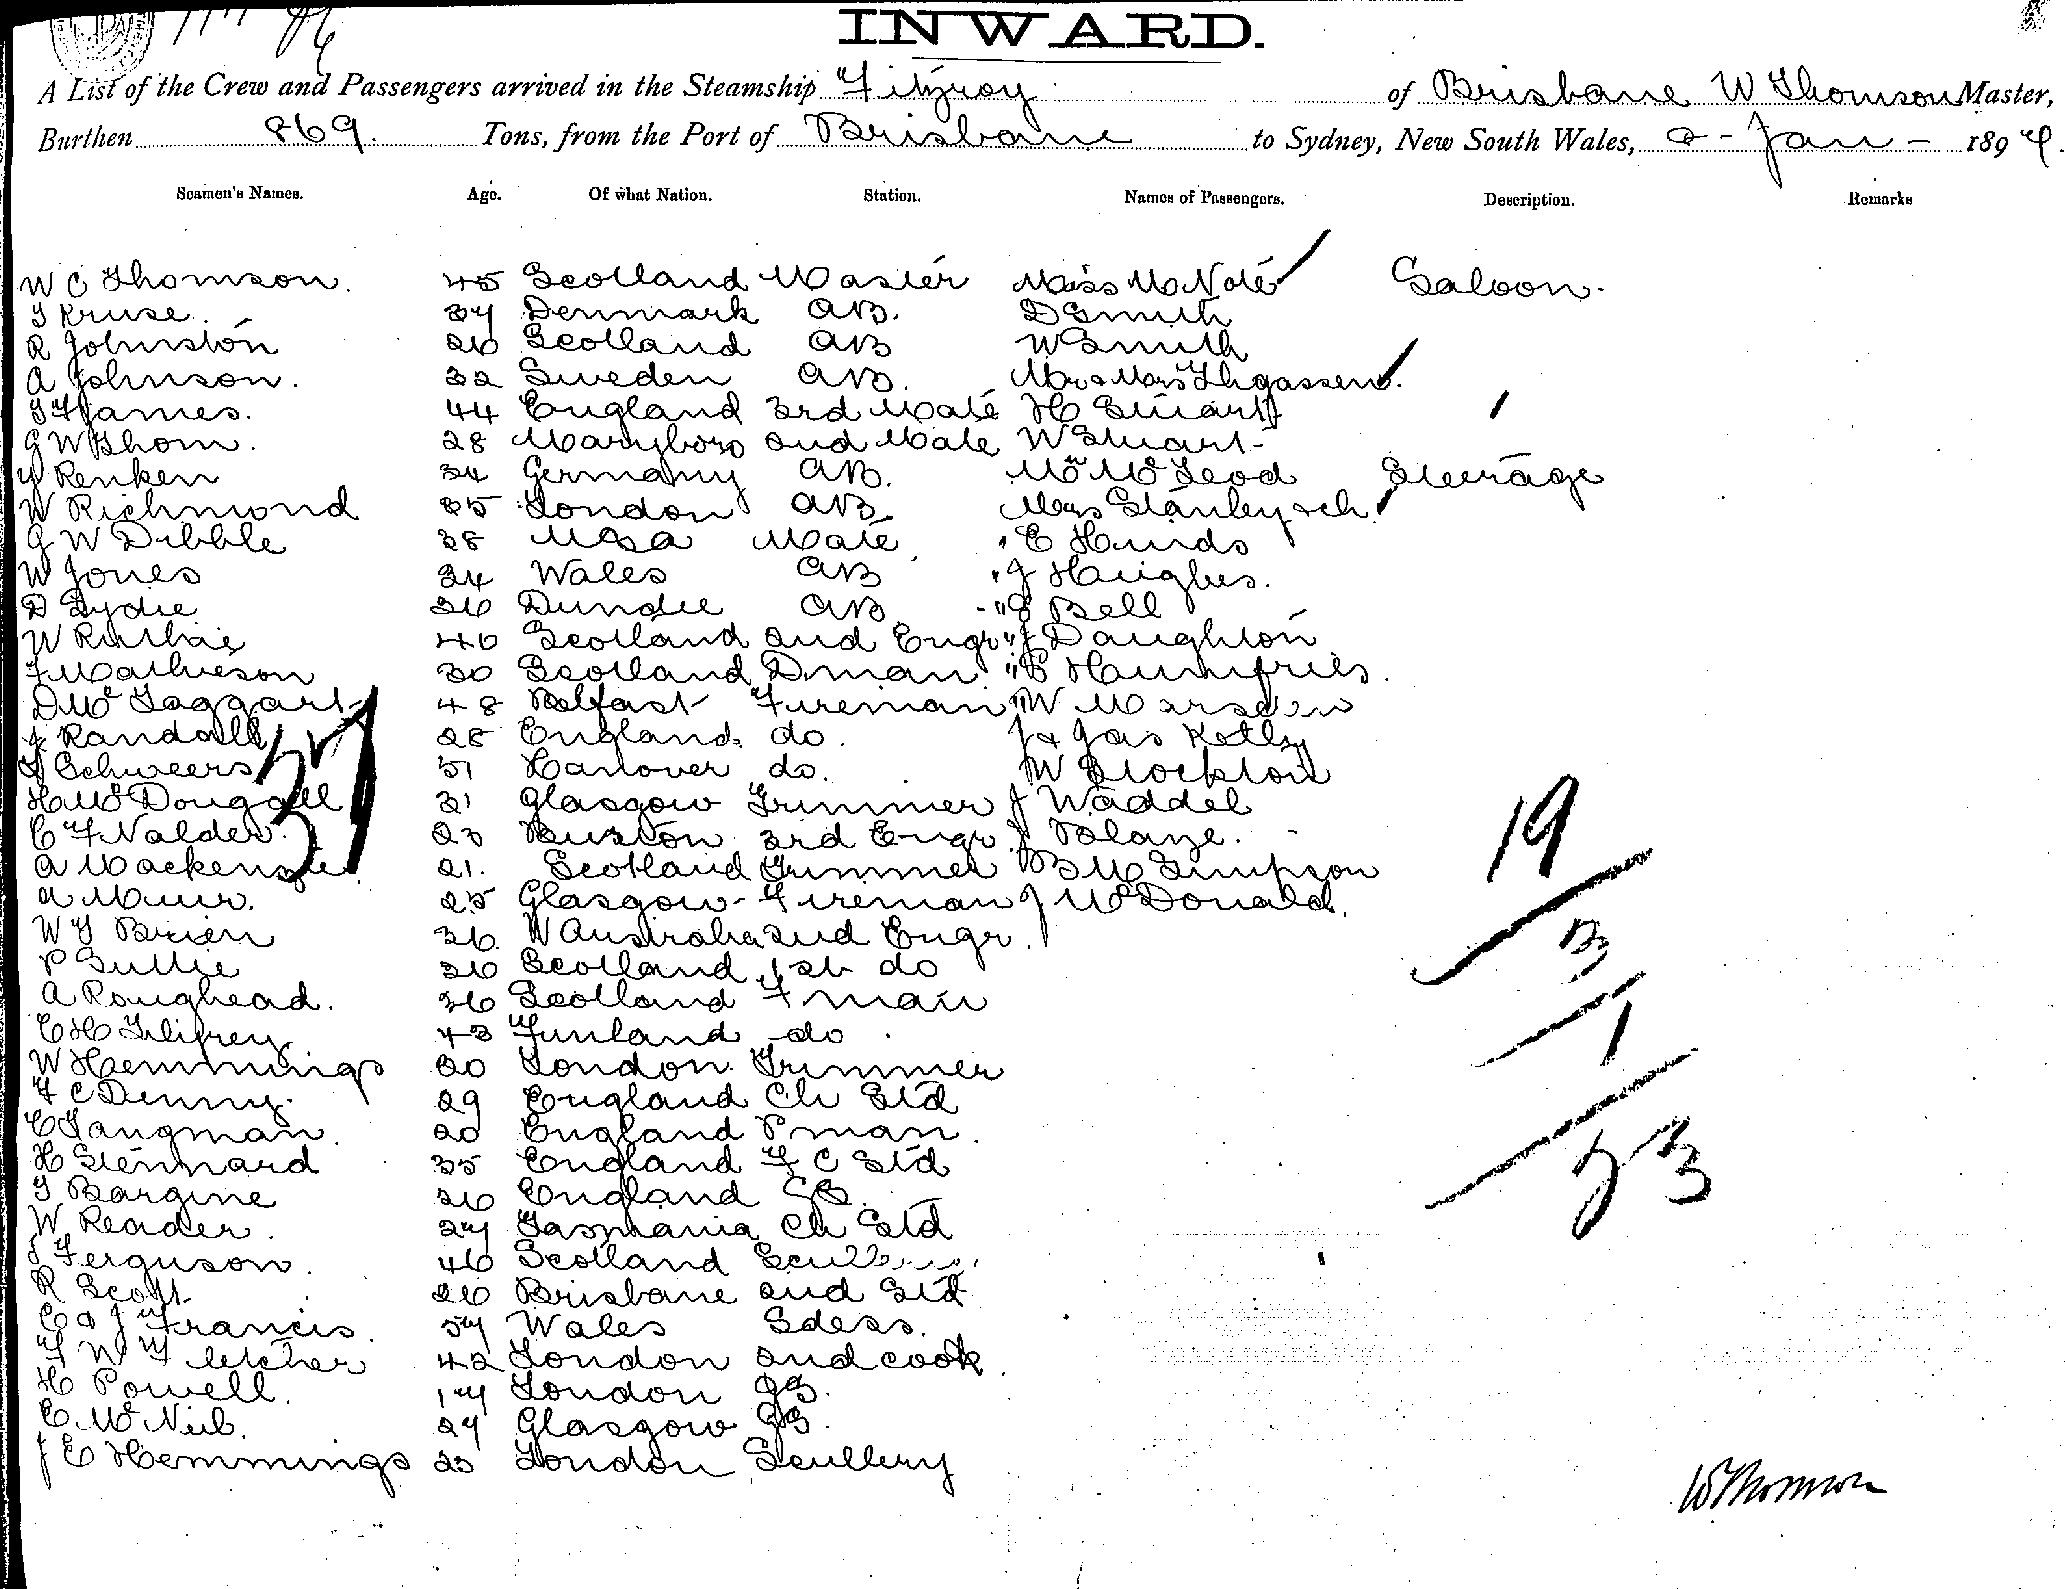 INWARD.
A List of the Crew and Passengers arrived in the Steamship Fitzroy of Brisbane W Thomson Master,
Burthen 869. Tons, from the Port of Brisbane to Sydney, New South Wales, 2 - Jan - 1897.
Seamen's Names. Age. Of what Nation. Station. Names of Passengers. Description. Remarks
W C Thomson. 45 Scotland Master Miss Saloon.
T Kruse. 37 Denmark AB. D Smith
R Johnston 26 Scotland AB W Smith
A Johnson. 32 Sweden AB. Mr & Mrs
James. 44 England 3rd Mate H Stuart
G W Thom. 28 Maryboro 2nd Mate W Stuart
Renken 34 Germany AB. Mr McLeod Steerage
W Richmond 35 London AB Mrs Stanley & ch.
G W Dibble 38 USA Mate " E Hinds
W Jones 34 Wales AB " J Hughes.
D 36 Dundee AB " Bell
W Ruthie 40 Scotland 2nd Engr " J Daughton
F Mathieson 30 Scotland Dman " Humfries.
D McTaggart 48 Belfast Fireman " W Marsden
J Randall 28 England. do. J & Jas Kelly
Schweers 51 Hanover do. W Stockton
H McDougall 31 Glasgow Trimmer J Waddel
C F Nalder. 23 3rd Engr J Blaze.
A Mackenzie 21. Scotland Trimmer B M Simpson
A Muir. 25 Glasgow Fireman J McDonald.
W T Brien 36 W Australia 2nd Engr.
P 36 Scotland 1st do
A Roughead. 36 Scotland Fman
C H 43 Finland do
W Hemmings 20 London Trimmer
F C Denny. 29 England Ch Std
C Langman. 20 England Pman.
H Stennard 35 England F C Std
T Bargine 26 England
W Reader. 27 Tasmania Ch Std
Ferguson. 46 Scotland
R Scott 26 Brisbane 2nd Std
C a J Francis. 57 Wales Sdess.
F W Fletcher 42 London 2nd cook
H Powell. 17 London GS.
C McNeil. 27 Glasgow GS.
J E Hemmings 23 London Scullery
37
19
3
1
23
W Thomson